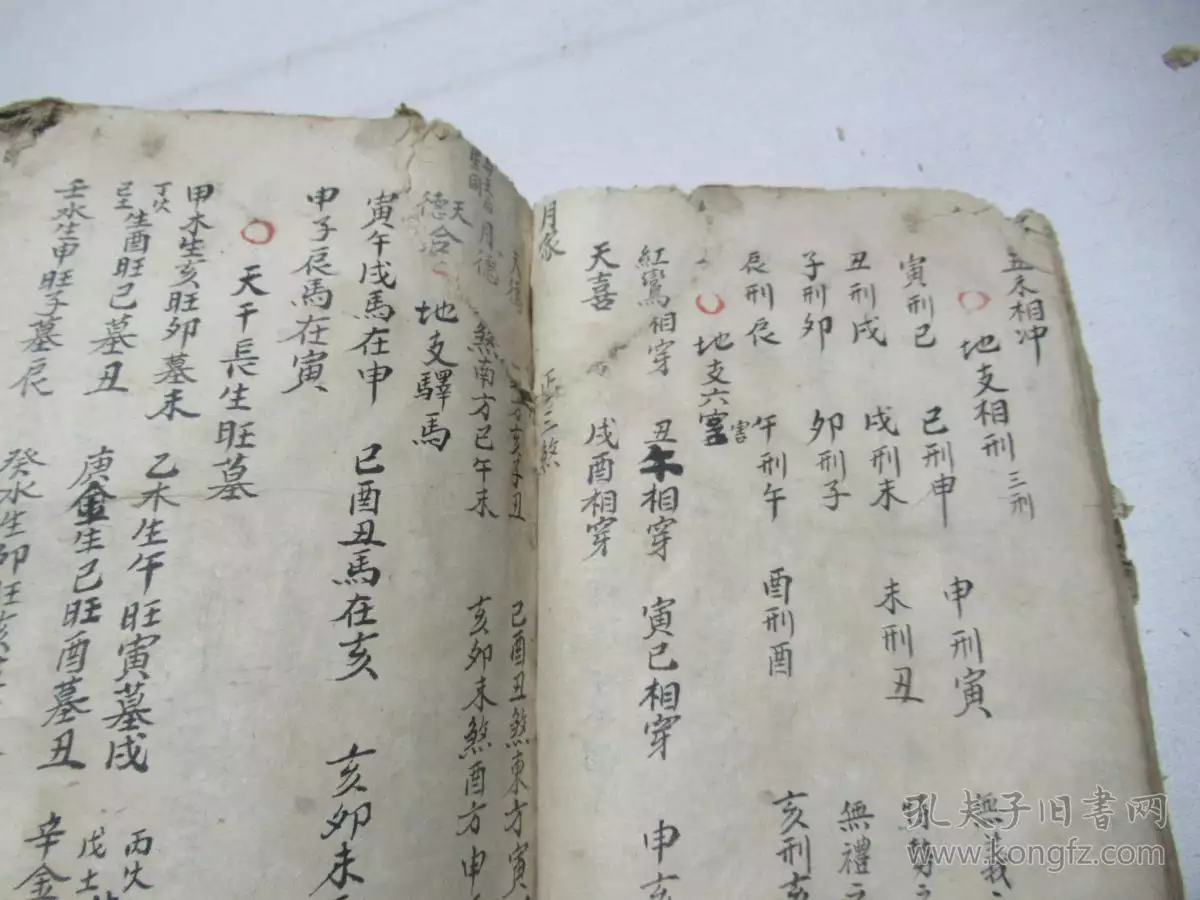 丑未相冲
地支相刑 三刑
寅刑巳 巳刑申 申刑寅 無義
丑刑戌 戌刑未 未刑丑
子刑卯 卯刑子 無禮之
辰刑辰 午刑午 酉刑酉 亥刑亥
地支六害 害
紅鸞 相穿 丑午相穿 寅巳相穿 申亥
天喜 戌酉相穿
月家 三煞
亥子丑 巳酉丑煞東方寅
月德 煞南方巳午未 亥卯未煞酉方申
天德合 地支驛馬
寅午戌馬在申 巳酉丑馬在亥 亥卯未
申子辰馬在寅
天干長生旺墓
甲木生亥旺卯墓未 乙木生午旺寅墓戌 丙火
丁火己土生酉旺巳墓丑 庚金生巳旺酉墓丑 戊土 辛金
壬水生申旺子墓辰 癸水生卯旺亥
孔夫子旧書网
@kongfz.com